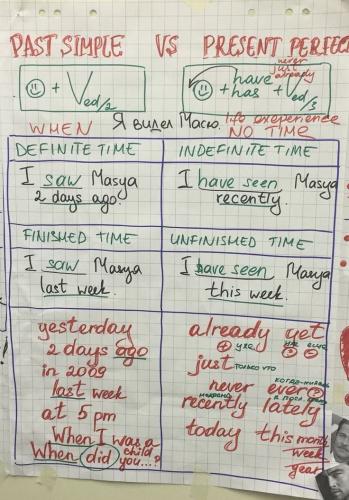 PAST SIMPLE VS PRESENT PERFECT
never
just
already
+ V ed/2
have
has
+ + V ed/3
WHEN
Я видел Масю.
life experience
NO TIME
DEFINITE TIME
INDEFINITE TIME
I saw Masya
2 days ago
I have seen Masya
recently.
FINISHED TIME
UNFINISHED TIME
I saw Masya
last week.
I have seen Masya
this week.
yesterday
2 days ago
in 2009
last week
at 5 pm
When I was a
child
When did you...?
already yet
+ уже уже ? еще -
just только что
never ever
когда-нибудь
recently lately
недавно в посл.
today this month
week
year